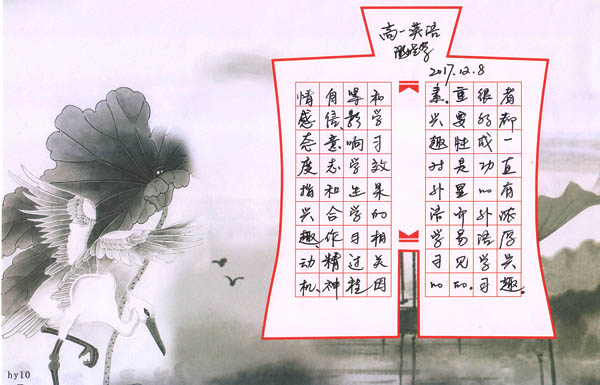 高一英语
2017.12.8
情感态度指兴趣、动机、
自信、意志和合作精神
等影响学生学习过程
和学习效果的相关因
素。兴趣对外语学习的
重要性是显而易见的。
很多成功的外语学习
者都一直有浓厚兴趣。
hy10